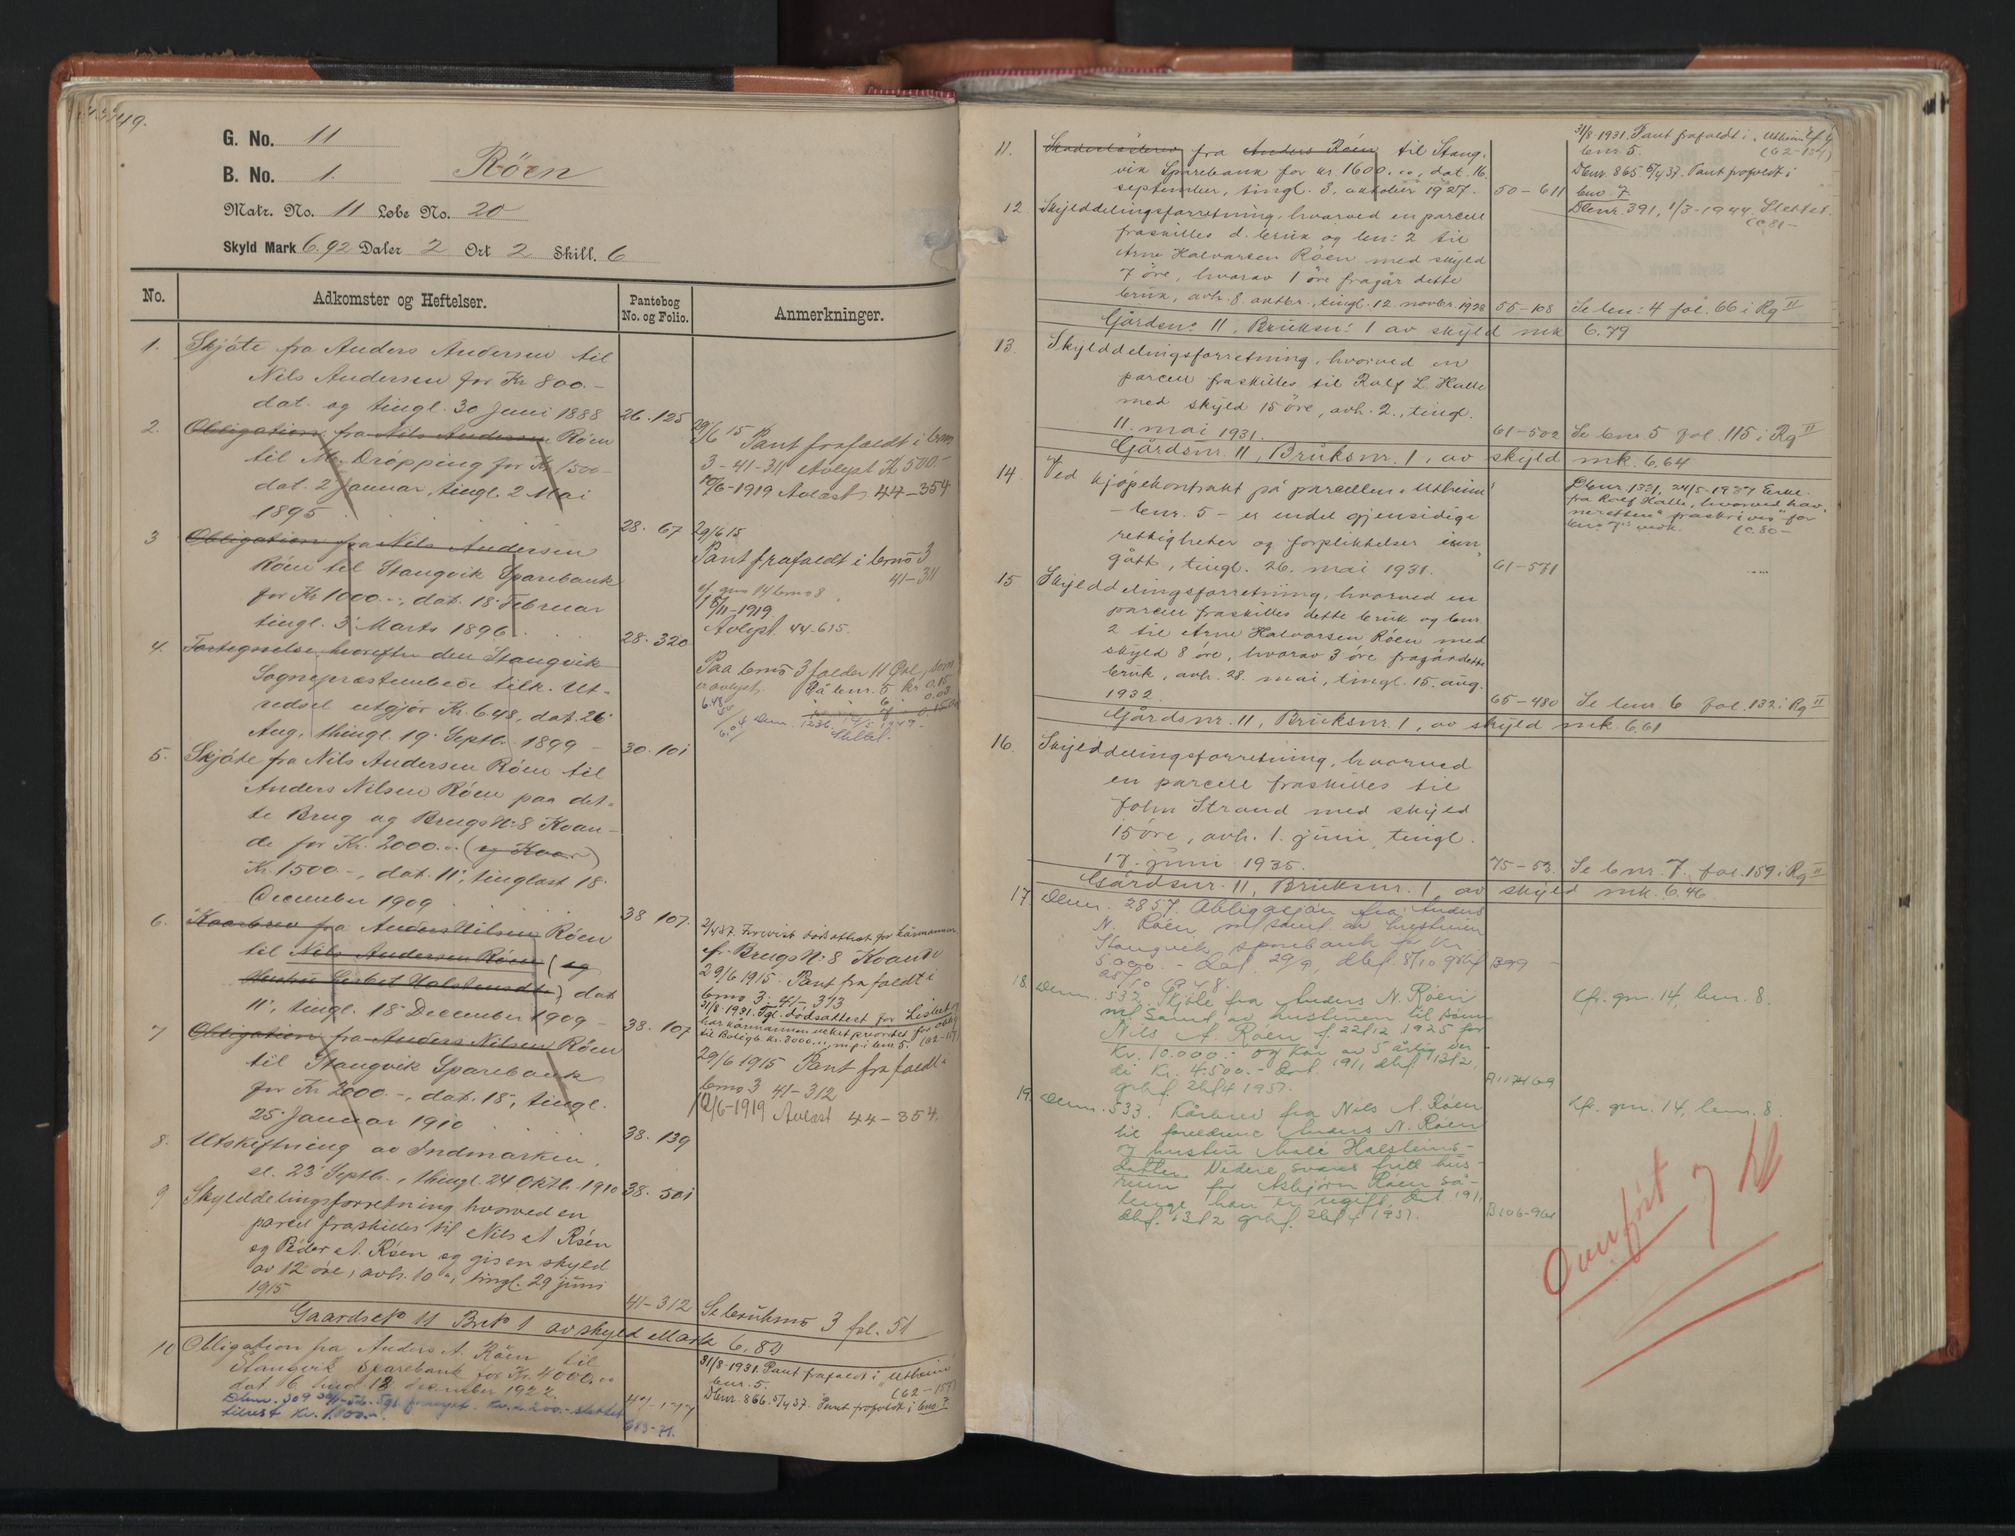 49.
G. No. 11
B. No. 1. Röen
Matr. No. 11 Løbe No. 20
Skyld Mark 6.92 Daler 2 Ort 2 Skill. 6
No. Adkomster og Heftelser. Pantebog No. og Folio. Anmerkninger.
1. Skjöte fra Anders Andersen til
Nils Andersen for Kr 800.-
dat. og tingl. 30 Juni 1888 26.125
2. Obligation fra Nils Andersen Röen
til M. Dröpping for Kr 1500-
dat. 2 Januar, tingl. 2 Mai
1895 28.67
29/6 15 Pant frafaldt i brno
3-41-311 Avlyst K 500.-
10/6-1919 Avlæst 44-354
3 Obligation fra Nils Andersen
Röen til Stangvik Sparebank
for Kr 1000.-, dat. 18 Februar
tingl. 3 Marts 1896. 28.320
29/6 15
Pant frafaldt i brno 3
41-311
cf. gno 14 brno 8
18/11-1919
Avlyst 44-615.
4. Fortegnelse, hvorefter den Stangvik
Sognepræstembede tilk. Ut-
redsel utgjör Kr. 6.48, dat. 26
Aug. thingl. 19 Septb. 1899 - 30.101
Paa brno 3 falder 11 Øre, som
er avlyst. På bnr. 5 kr 0.15
5. Skjöte fra Nils Andersen Röen til
Anders Nilsen Röen paa det-
te Brug og Brugs N: 8 Kvan-
de for Kr. 2000.- (og Kaar)
Kr. 1500-, dat. 11, tinglæst 18
December 1909 38.107.
6. Kaarbrev fra Anders Nilsen Röen
til Nils Andersen Röen (og
Hustru Lisbet Halstensdtr) dat
11, tingl. 18 December 1909 - 38.107
2/4 87. Forevist dödsattest for kårmannen
cfr Brugs N: 8 Kvande
29/6 1915 - Pant frafaldt i
brno 3. 41-313
31/8 1931. Tgl. dödsattest for Lisbet
har kårmannen veket prioritet for oblig
til Boligb kr. 3000,-, m.p. i bnr. 5. (62-157)
7 Obligation fra Anders Nilsen Röen
til Stangvik Sparebank
for Kr 2000.-, dat. 18, tingl.
25 Januar 1910 38.139
29/6 1915 Pant frafaldt i
brno 3 41-312
10/6-1919 Avlæst 44-354.
8. Utskiftning av Indmarken,
sl. 23 Septb., thingl. 24 Oktb. 1910 38.501
9 Skylddelingsforretning hvorved en
parcel fraskilles til Nils A Röen
og Peder A. Röen og gis en skyld
av 12 öre, avh. 10, tingl. 29 juni
1915 41-312 Se bruksno 3 fol. 51
Gaardsno 11 Brno 1 av skyld Mark 6,80
10 Obligation fra Anders A. Röen til
Stangvik Sparebank for Kr. 4000.00
dat 6 tingl 18 december 1922
31/8-1931. Pant frafaldt i "Utheim"
bnr. 5. (62-157)
Dbnr. 866. 5/4 37. Pant frafaldt i bno 7
11. Skadesløsbrev fra Anders Röen til Stang-
vik Sparebank for kr. 1600.00, dat. 16
september, tingl. 3. oktober 1927. 50-611
31/8 1931. Pant frafaldt i "Utheim"
bnr. 5. (62-154)
Dbnr. 865 5/4 37. Pant frafaldt i
bno 7
Dbnr. 391, 1/3-1944. Slettet.
12. Skylddelingsforretning, hvorved en parcell
fraskilles d. bruk og bnr: 2 til
Arne Halvarsen Röen med skyld
7 öre, hvorav 1 öre fragår dette
bruk, avh. 8. oktbr., tingl. 12. novbr. 1928 55-108 Se bnr: 4 fol. 66 i Rg II
Gårdsnr: 11, Bruksnr: 1 av skyld mk 6.79
13. Skylddelingsforretning, hvorved en
parcell fraskilles til Rolf L. Halle
med skyld 15 öre, avh. 2., tingl.
11. mai 1931. 61-502 Se bnr 5 fol. 115 i Rg II
Gårdsnr. 11, Bruksnr. 1, av skyld mk. 6,64
14. Ved kjöpekontrakt på parcellen "Utheim"
- bnr. 5 - er endel gjensidige
rettigheter og forpliktelser inn-
gått, tingl. 26. mai 1931. 61-571
Dbnr. 1331, 24/5-1937 Erkl.
fra Rolf Halle, hvorved hav-
neretten fraskrives for
bno 7 vedk.
15 Skylddelingsforretning, hvorved en
parcell fraskilles dette bruk og bnr.
2 til Arne Halvarsen Röen med
skyld 8 öre, hvorav 3 öre fragår dette
bruk, avh. 28. mai, tingl. 15. aug.
1932. 65-480 Se bnr. 6 fol. 132 i Rg II
Gårdsnr. 11, Bruksnr. 1, av skyld mk. 6,61
16. Skylddelingsforretning, hvorved
en parcell fraskilles til
John Strand med skyld
15 öre, avh. 1. juni, tingl.
17. juni 1935. 75-53. Se bnr. 7. fol. 159 i Rg II
Gårdsnr. 11, Bruksnr. 1, av skyld mk. 6.46.
17. Dbnr. 2857. Obligasjon fra Anders
N. Röen m/ samt. av hustruen
Stangvik sparebank for Kr
5.000.- Dat. 29/9, dbf. 8/10 grbf B99
18. Dbnr. 532. Skjöte fra Anders N. Röen
m/ samt av hustruen til sönn
Nils A. Röen f. 22/12 1925 for
Kr. 10.000.- og kår av 5 årlig ver-
di Kr. 4.500.- Dat. 19/1, dbf. 13/2,
grbf. 26/4 1957.
kfr. gnr. 14, bnr. 8.
19. Dbnr. 533. Kårbrev fra Nils A. Röen
til foreldrene Anders N. Röen
og hustru Malé Halsteins-
datter. Videre svares fritt hus-
rum for Asbjörn Röen så-
lenge han er ugift. Dat 19/1,
dbf. 13/2 grbf. 26/4 1957.
kfr. gnr. 14, bnr. 8.
Overfört